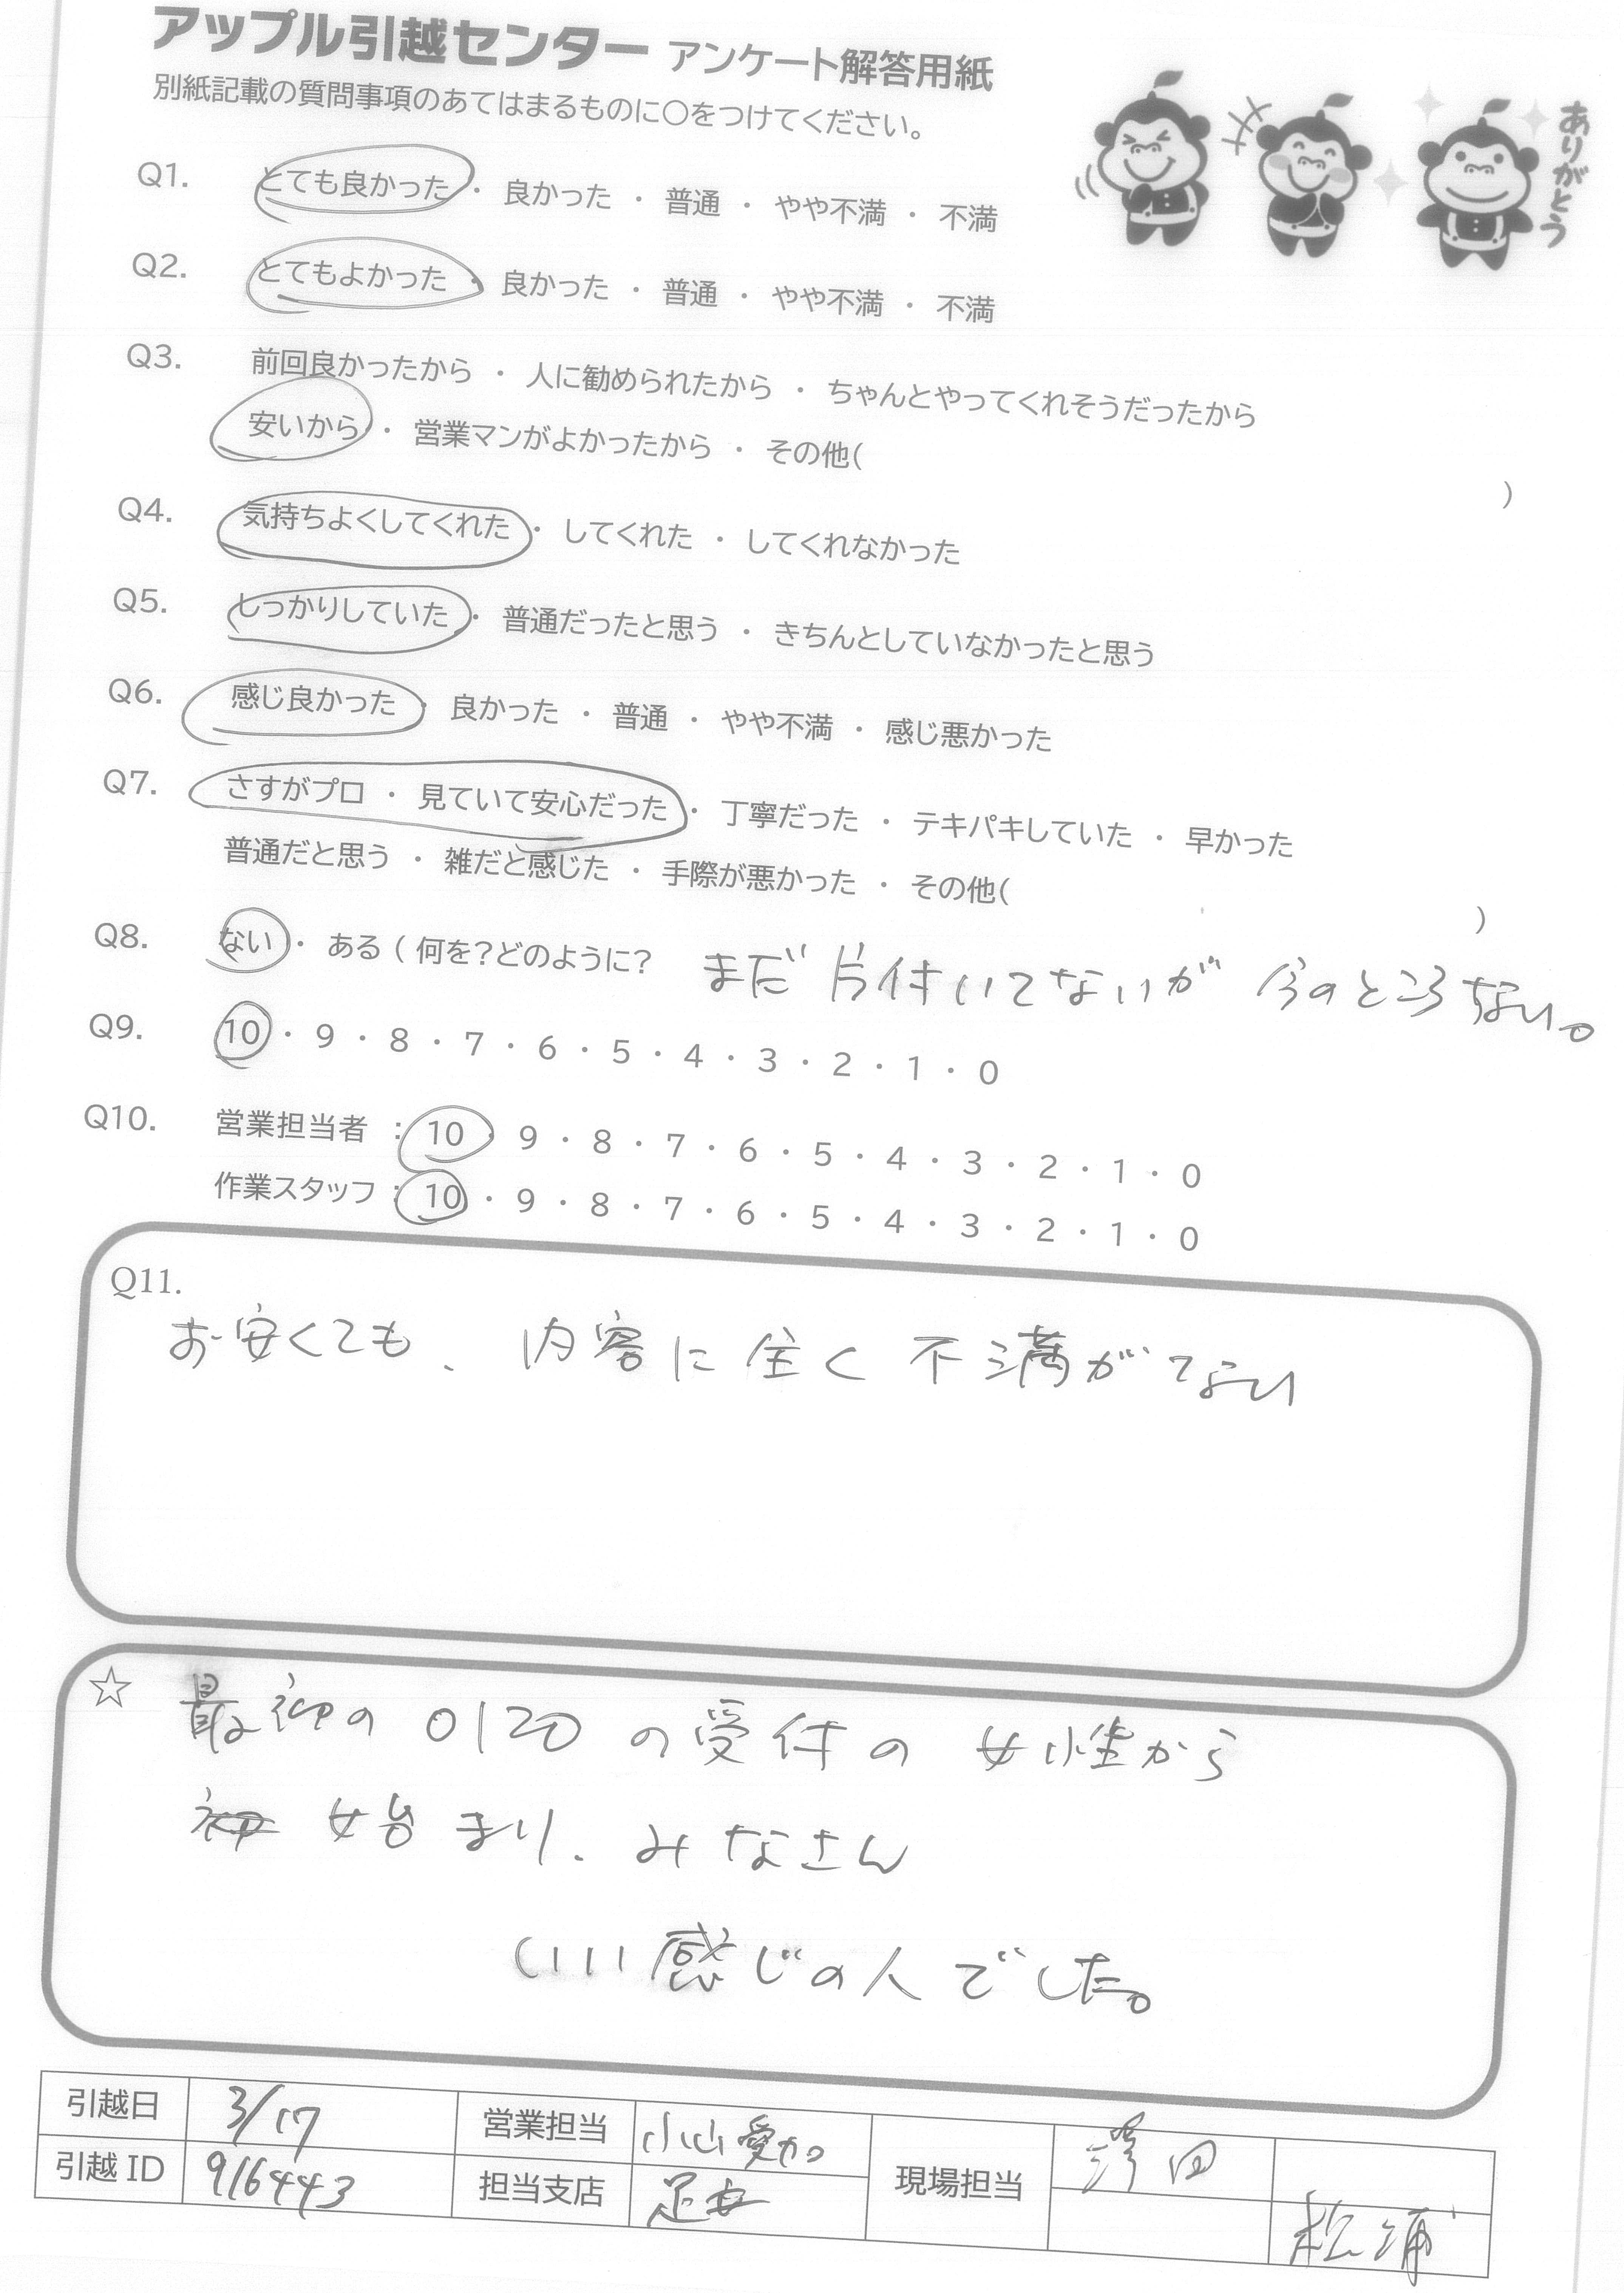 アップル引越センター アンケート解答用紙
別紙記載の質問事項のあてはまるものに〇をつけてください。
ありがとう
Q1. とても良かった ・ 良かった ・ 普通 ・ やや不満 ・ 不満
Q2. とてもよかった ・ 良かった ・ 普通 ・ やや不満 ・ 不満
Q3. 前回良かったから ・ 人に勧められたから ・ ちゃんとやってくれそうだったから
安いから ・ 営業マンがよかったから ・ その他( )
Q4. 気持ちよくしてくれた ・ してくれた ・ してくれなかった
Q5. しっかりしていた ・ 普通だったと思う ・ きちんとしていなかったと思う
Q6. 感じ良かった ・ 良かった ・ 普通 ・ やや不満 ・ 感じ悪かった
Q7. さすがプロ ・ 見ていて安心だった ・ 丁寧だった ・ テキパキしていた ・ 早かった
普通だと思う ・ 雑だと感じた ・ 手際が悪かった ・ その他( )
Q8. ない ・ ある ( 何を?どのように? まだ片付いてないが 今のところない。
Q9. 10 ・ 9 ・ 8 ・ 7 ・ 6 ・ 5 ・ 4 ・ 3 ・ 2 ・ 1 ・ 0
Q10. 営業担当者 : 10 ・ 9 ・ 8 ・ 7 ・ 6 ・ 5 ・ 4 ・ 3 ・ 2 ・ 1 ・ 0
作業スタッフ : 10 ・ 9 ・ 8 ・ 7 ・ 6 ・ 5 ・ 4 ・ 3 ・ 2 ・ 1 ・ 0
Q11.
お安くても、内容に全く不満がない
☆ 最初の0120の受付の女性から
始まり、みなさん
いい感じの人でした。
引越日 3/17 営業担当 小山愛加 現場担当 澤田
引越 ID 916443 担当支店 足立 松浦